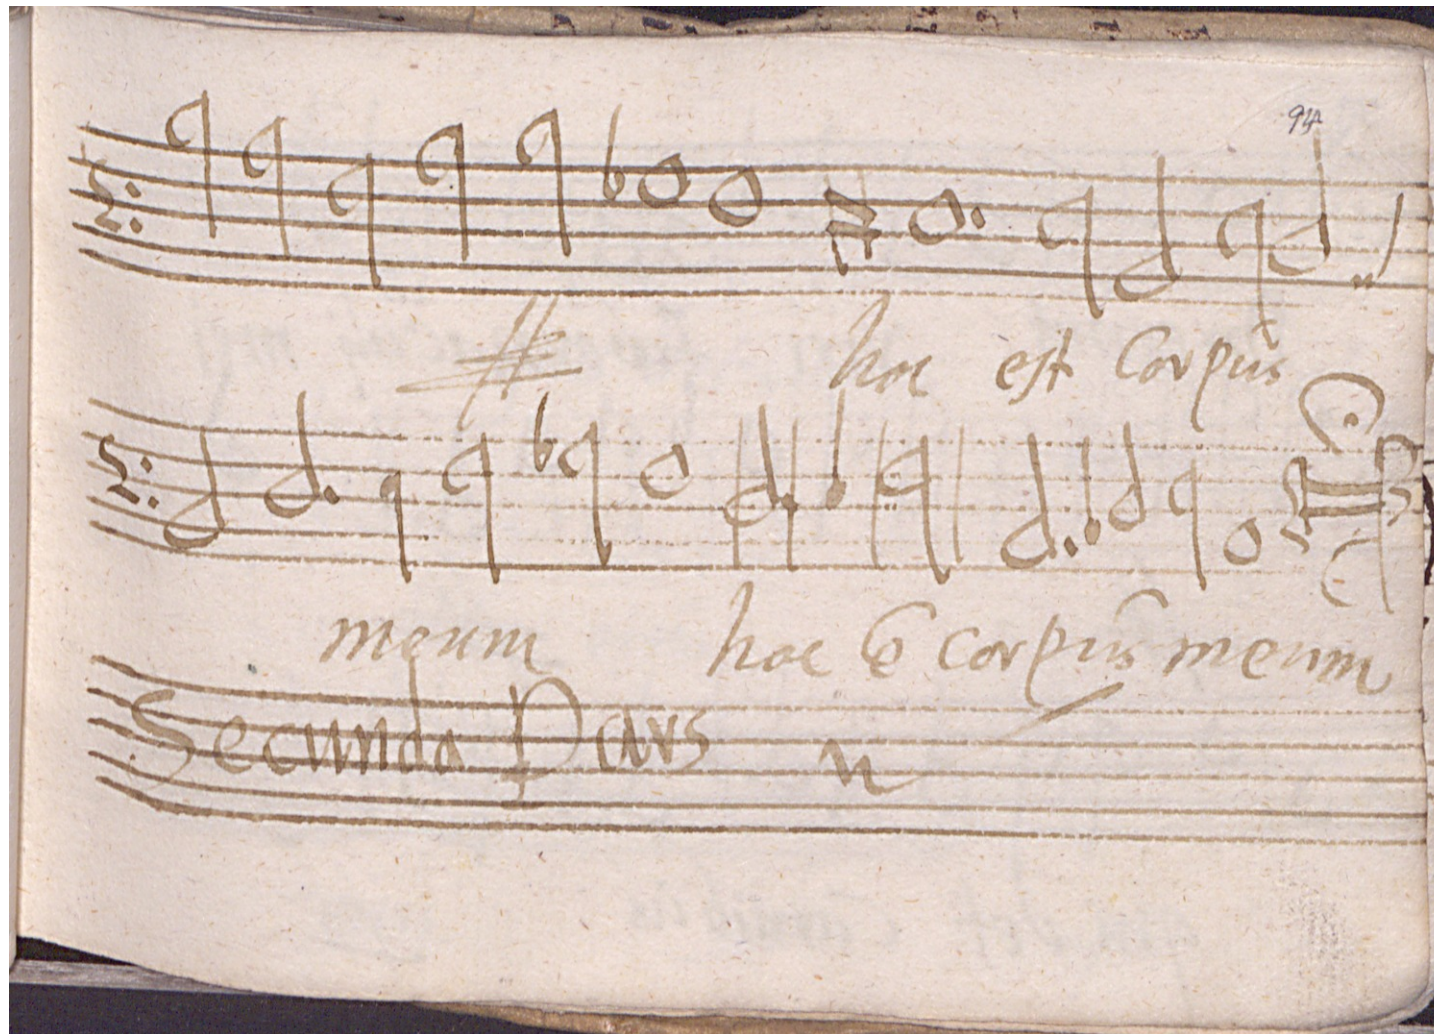 94
hoc est Corpus
meum hoc ē corpus meum
Secunda Pars